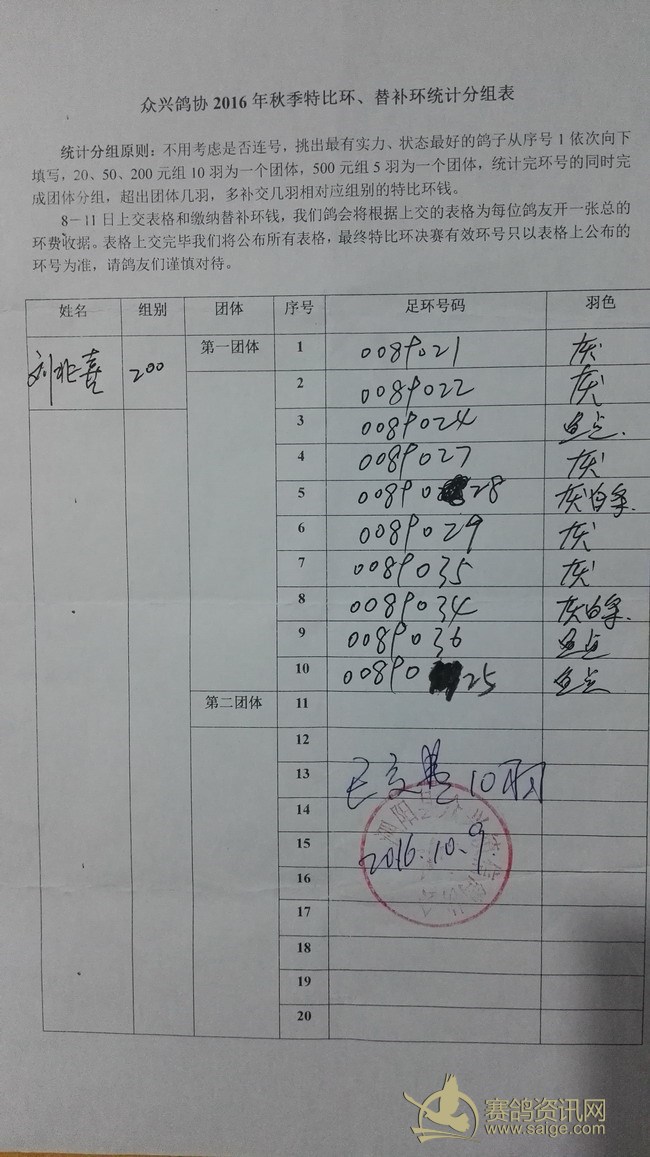 众兴鸽协 2016 年秋季特比环、替补环统计分组表
统计分组原则：不用考虑是否连号，挑出最有实力、状态最好的鸽子从序号 1 依次向下
填写，20、50、200 元组 10 羽为一个团体，500 元组 5 羽为一个团体，统计完环号的同时完
成团体分组，超出团体几羽，多补交几羽相对应组别的特比环钱。
8－11 日上交表格和缴纳替补环钱，我们鸽会将根据上交的表格为每位鸽友开一张总的
环费收据。表格上交完毕我们将公布所有表格，最终特比环决赛有效环号只以表格上公布的
环号为准，请鸽友们谨慎对待。
姓名 组别 团体 序号 足环号码 羽色
刘 喜 200 第一团体 1 0089021 灰
2 0089022 灰
3 0089024 鱼点.
4 0089027 灰
5 00890 28 灰白条.
6 0089029 灰
7 0089035 灰
8 0089034 灰白条.
9 0089036 鱼点
10 00890 25 鱼点
第二团体 11
12
13 已交 10羽
14
15 2016.10.9
16
17
18
19
20
赛鸽资讯网
www.saige.com